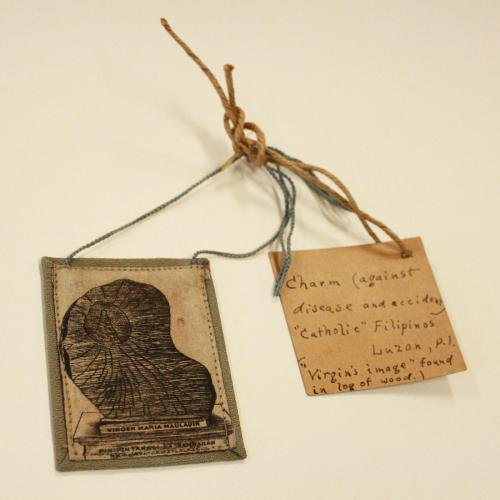 VIRGEN MARIA MAULAWIN
Charm (against
disease and accident,
"Catholic" Filipinos
Luzon, P.I.
("Virgin's image" found
in log of wood.)